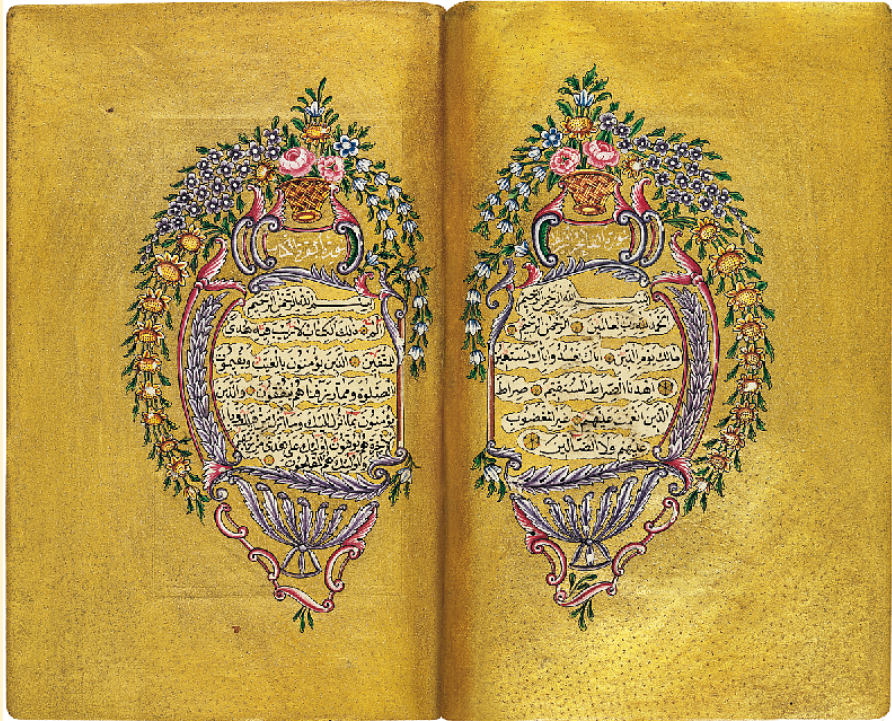 سورة الفاتحة
بسم الله الرحمن الرحيم
الحمد لله رب العالمين الرحمن الرحيم
مالك يوم الدين اياك نعبد واياك نستعين
اهدنا الصراط المستقيم صراط
الذين انعمت عليهم غير المغضوب
عليهم ولا الضالين
سورة البقرة
بسم الله الرحمن الرحيم
الم ذلك الكتاب لا ريب فيه هدى
للمتقين الذين يؤمنون بالغيب ويقيمون
الصلوة ومما رزقناهم ينفقون والذين
يؤمنون بما انزل اليك وما انزل من قبلك
وبالاخرة هم يوقنون اولئك على هدى من ربهم
واولئك هم المفلحون